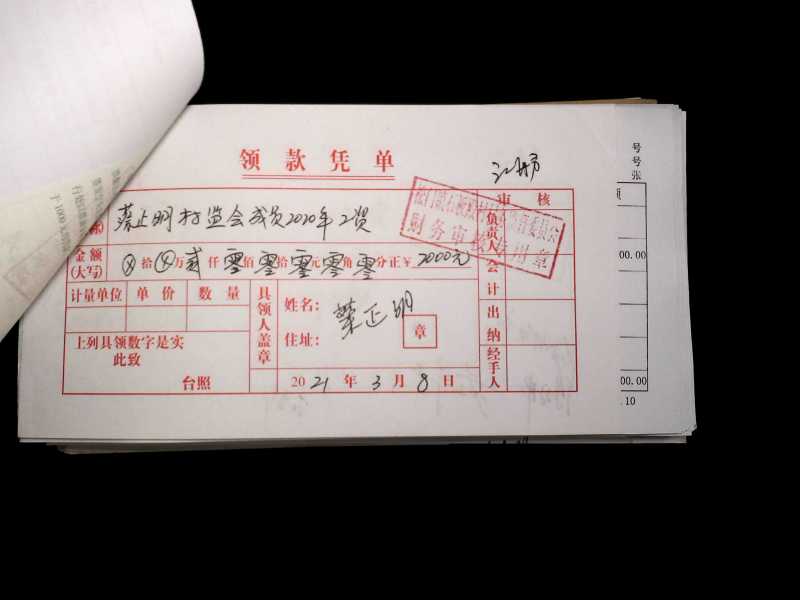 领款凭单
审核
蔡正明村监会成员2020年工资
金额
(大写)
⊗拾⊗万贰仟零佰零拾零元零角零分正¥2000元
财务审核专用章
负责人
会计
出纳
经手人
计量单位 单价 数量
具领人盖章
姓名:
蔡正明
住址:
章
上列具领数字是实
此致
台照
2021年3月8日
号
号
张
00.00
00.00
.10